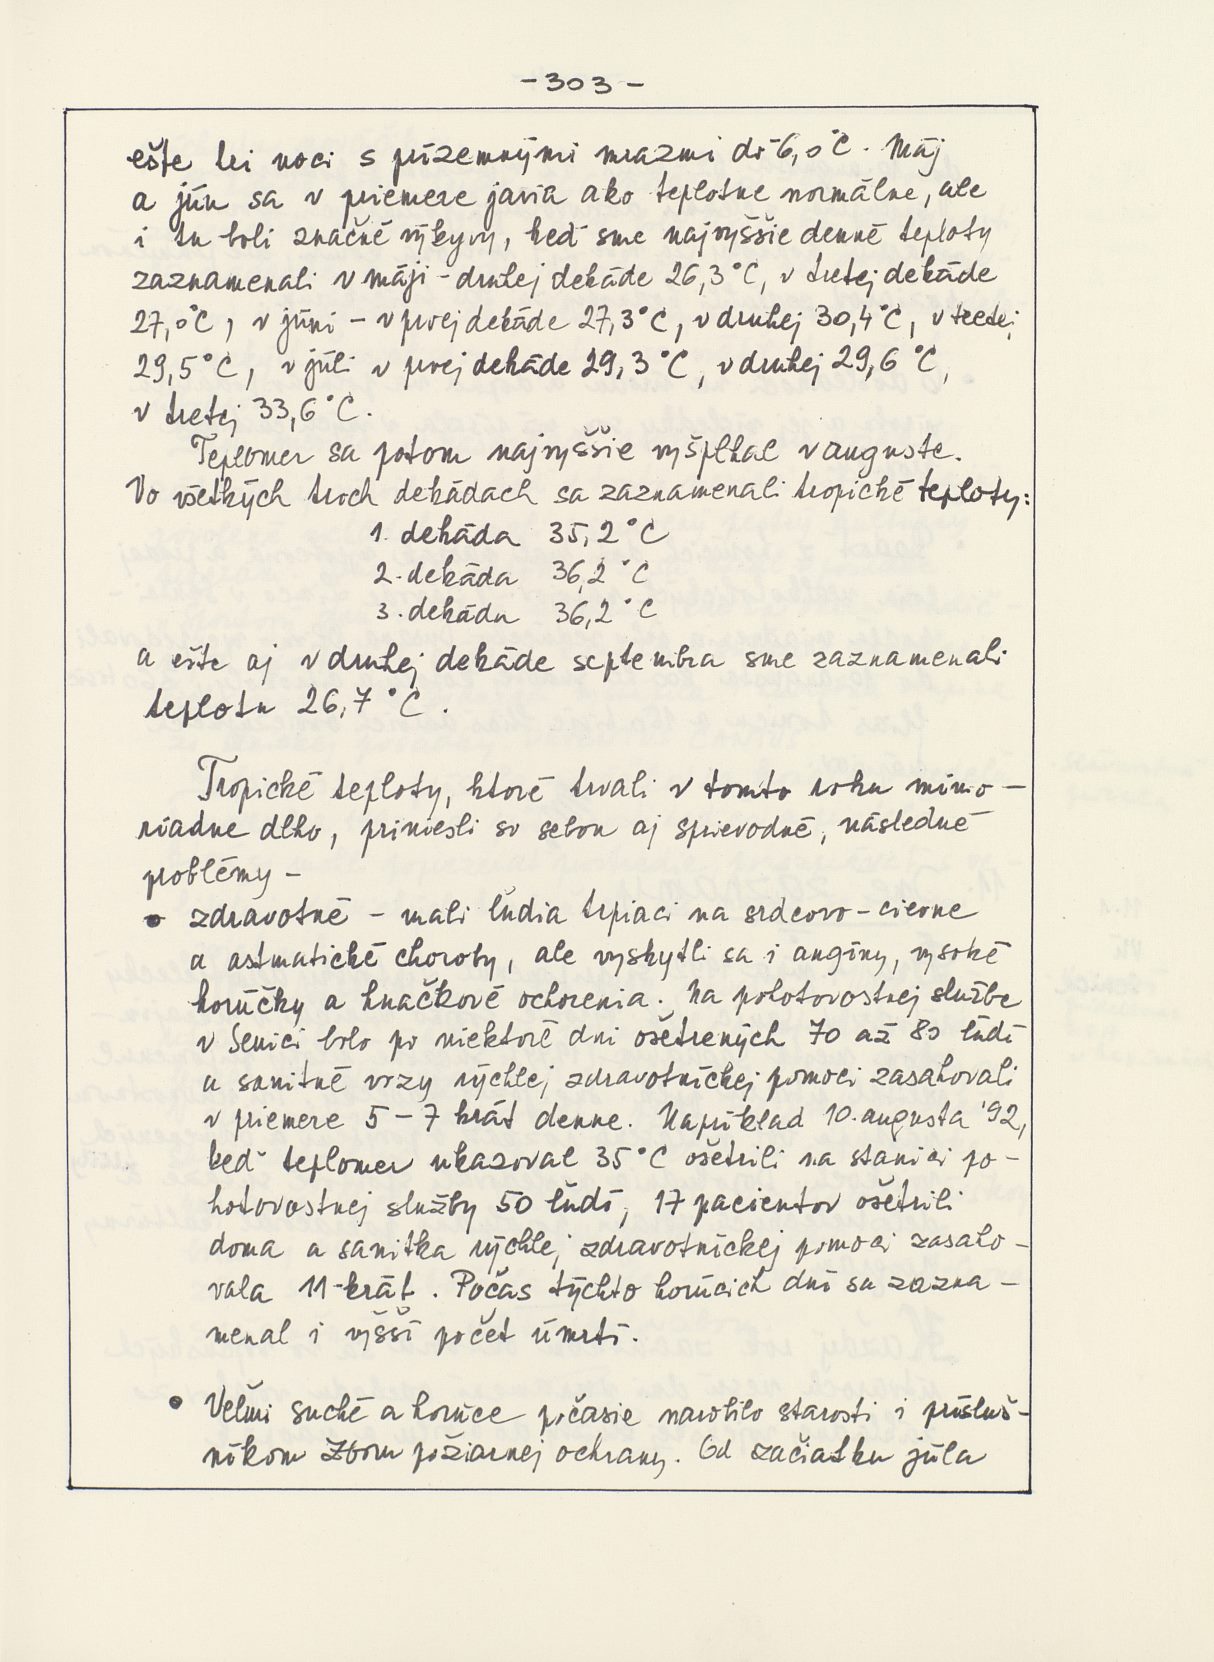 - 303 -
ešte tri noci s prízemnými mrazmi do -6,0 °C. Máj
a jún sa v priemere javia ako teplotne normálne, ale
i tu boli značné výkyvy, keď sme najvyššie denné teploty
zaznamenali v máji - druhej dekáde 26,3 °C, v tretej dekáde
27,0 °C, v júni - v prvej dekáde 27,3 °C, v druhej 30,4 °C, v tretej
29,5 °C, v júli v prvej dekáde 29,3 °C, v druhej 29,6 °C,
v tretej 33,6 °C.
Teplomer sa potom najvyššie vyšplhal v auguste.
Vo všetkých troch dekádach sa zaznamenali tropické teploty:
1. dekáda 35,2 °C
2. dekáda 36,2 °C
3. dekáda 36,2 °C
a ešte aj v druhej dekáde septembra sme zaznamenali
teplotu 26,7 °C.
Tropické teploty, ktoré trvali v tomto roku mimo-
riadne dlho, priniesli so sebou aj sprievodné, následné
problémy -
• zdravotné - mali ľudia trpiaci na srdcovo-cievne
a astmatické choroby, ale vyskytli sa i angíny, vysoké
horúčky a hnačkové ochorenia. Na pohotovostnej službe
v Senici bolo po niektoré dni ošetrených 70 až 80 ľudí
a sanitné vozy rýchlej zdravotníckej pomoci zasahovali
v priemere 5 - 7 krát denne. Napríklad 10. augusta '92,
keď teplomer ukazoval 35 °C ošetrili na stanici po-
hotovostnej služby 50 ľudí, 17 pacientov ošetrili
doma a sanitka rýchlej zdravotníckej pomoci zasaho-
vala 11-krát. Počas týchto horúcich dní sa zazna-
menal i vyšší počet úmrtí.
• Veľmi suché a horúce počasie narobilo starosti i prísluš-
níkom Zboru požiarnej ochrany. Od začiatku júla